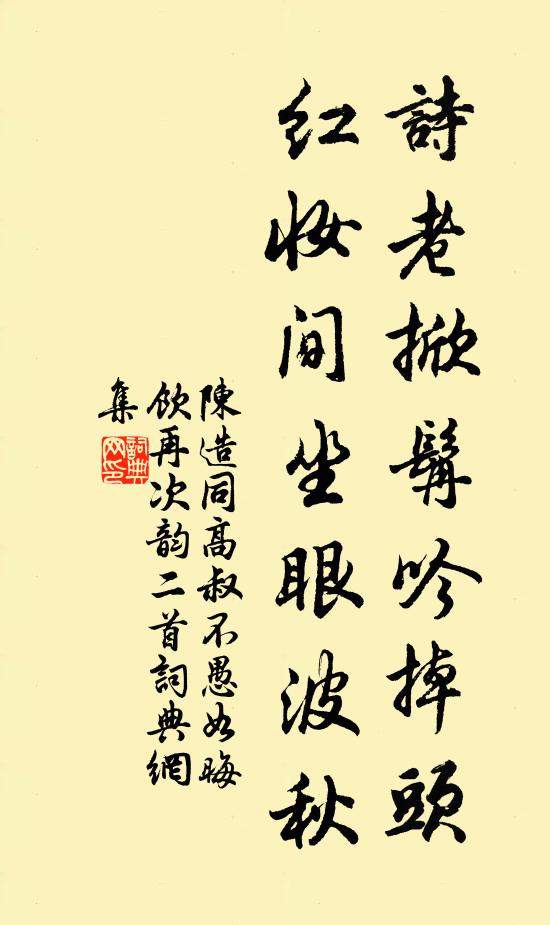 詩老掀髯吟掉頭
红妆间坐眼波秋
陳造同高叔不愚如晦
飲再次韵二首詞典網
集
詞典网印